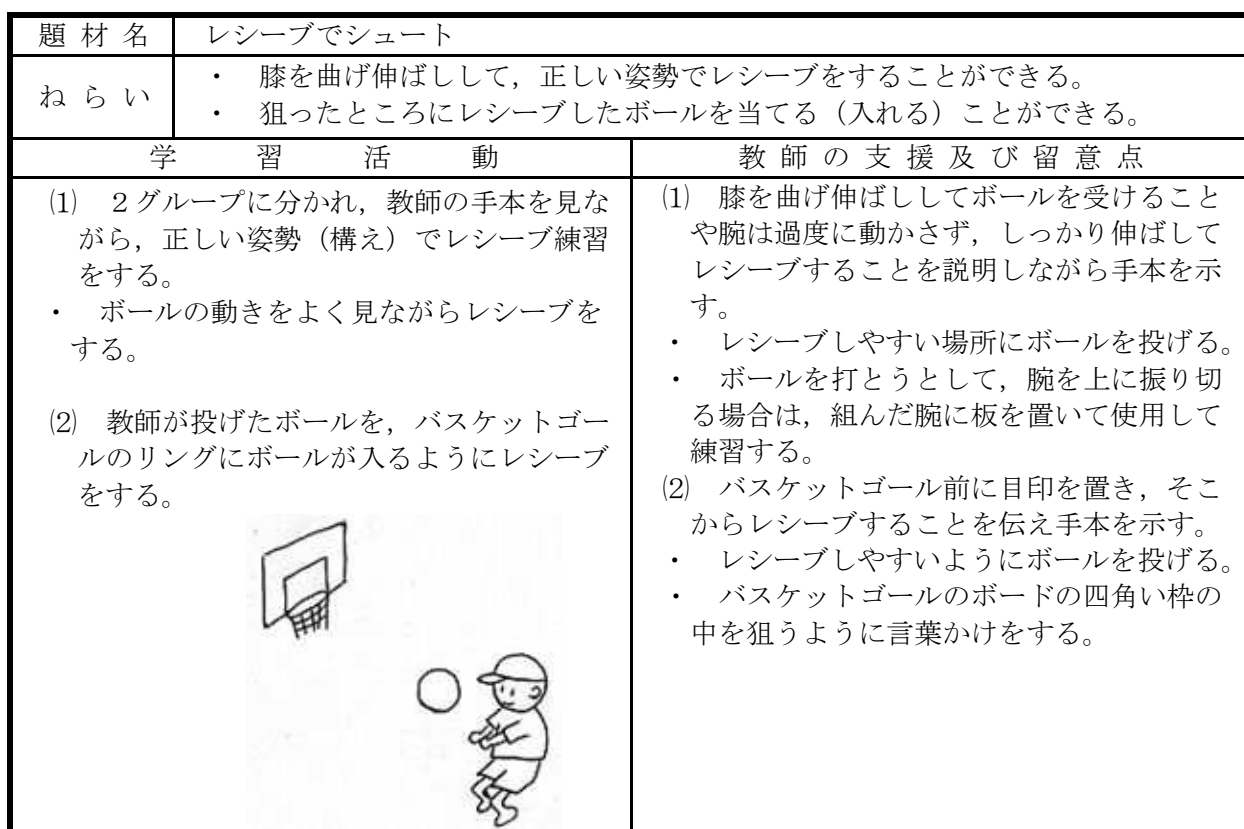 題材名 レシーブでシュート
ねらい
・ 膝を曲げ伸ばしして，正しい姿勢でレシーブをすることができる。
・ 狙ったところにレシーブしたボールを当てる（入れる）ことができる。
学習活動
⑴ ２グループに分かれ，教師の手本を見な
がら，正しい姿勢（構え）でレシーブ練習
をする。
・ ボールの動きをよく見ながらレシーブを
する。
⑵ 教師が投げたボールを，バスケットゴー
ルのリングにボールが入るようにレシーブ
をする。
教師の支援及び留意点
⑴ 膝を曲げ伸ばししてボールを受けること
や腕は過度に動かさず，しっかり伸ばして
レシーブすることを説明しながら手本を示
す。
・ レシーブしやすい場所にボールを投げる。
・ ボールを打とうとして，腕を上に振り切
る場合は，組んだ腕に板を置いて使用して
練習する。
⑵ バスケットゴール前に目印を置き，そこ
からレシーブすることを伝え手本を示す。
・ レシーブしやすいようにボールを投げる。
・ バスケットゴールのボードの四角い枠の
中を狙うように言葉かけをする。